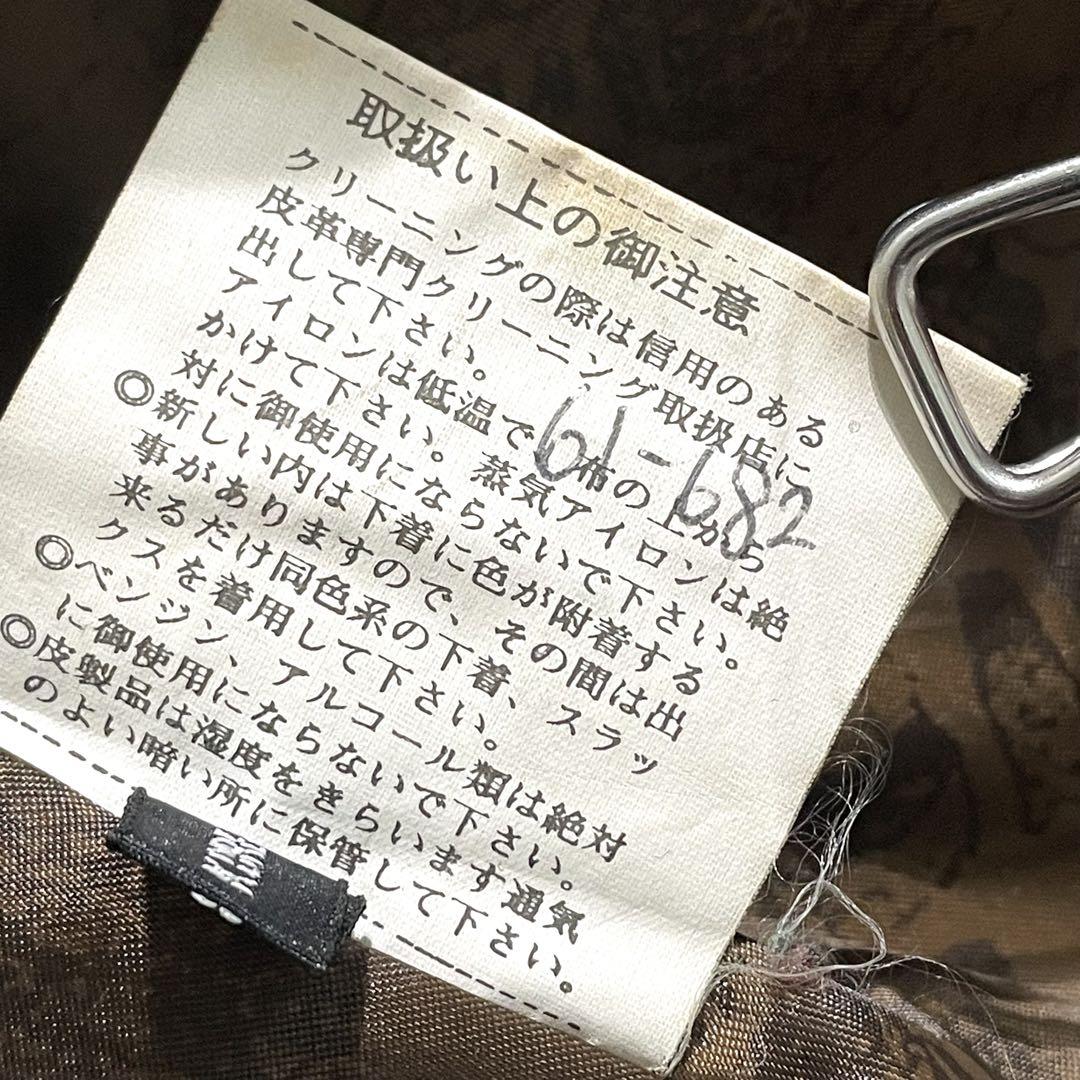 取扱い上の御注意
クリーニングの際は信用のある
皮革専門クリーニング取扱店に
出して下さい。
アイロンは低温で布の上から
かけて下さい。蒸気アイロンは絶
対に御使用にならないで下さい。
◎新しい内は下着に色が附着する
事がありますので、その間は出
来るだけ同色系の下着、スラッ
クスを着用して下さい。
◎ベンジン、アルコール類は絶対
に御使用にならないで下さい。
◎皮製品は湿度をきらいます通気
のよい暗い所に保管して下さい。
61-682